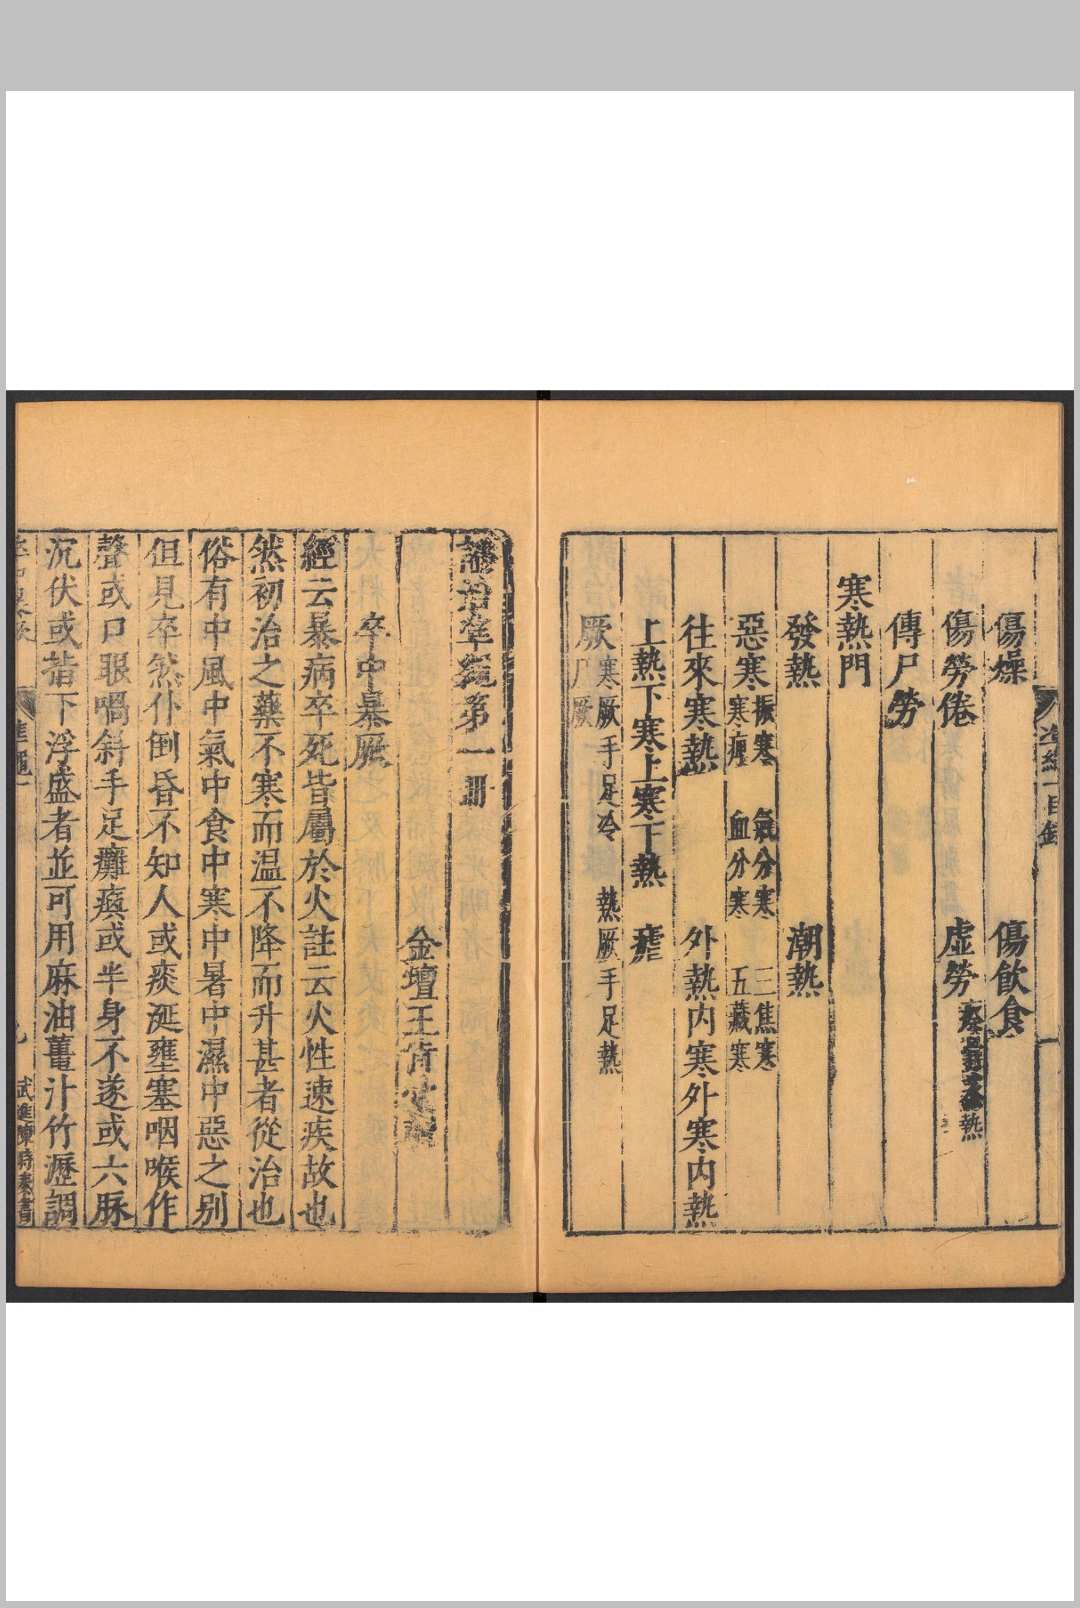 傷燥 傷飲食
傷勞倦 虛勞
傳尸勞
寒熱門
發熱 潮熱
惡寒 振寒 寒痙 氣分寒 血分寒 三焦寒 五藏寒
往來寒熱 外熱內寒外寒內熱
上熱下寒上寒下熱 瘧
厥 寒厥手足冷 熱厥手足熱 尸厥
證治準繩第一冊
金壇王肯堂
卒中暴厥
經云暴病卒死皆屬於火註云火性速疾故也
然初治之藥不寒而温不降而升甚者從治也
俗有中風中氣中食中寒中暑中濕中惡之別
但見卒然仆倒昏不知人或痰涎壅塞咽喉作
聲或口眼喎斜手足癱瘓或半身不遂或六脉
沉伏或指下浮盛者並可用麻油薑汁竹瀝調
準繩一
武進陳時泰書